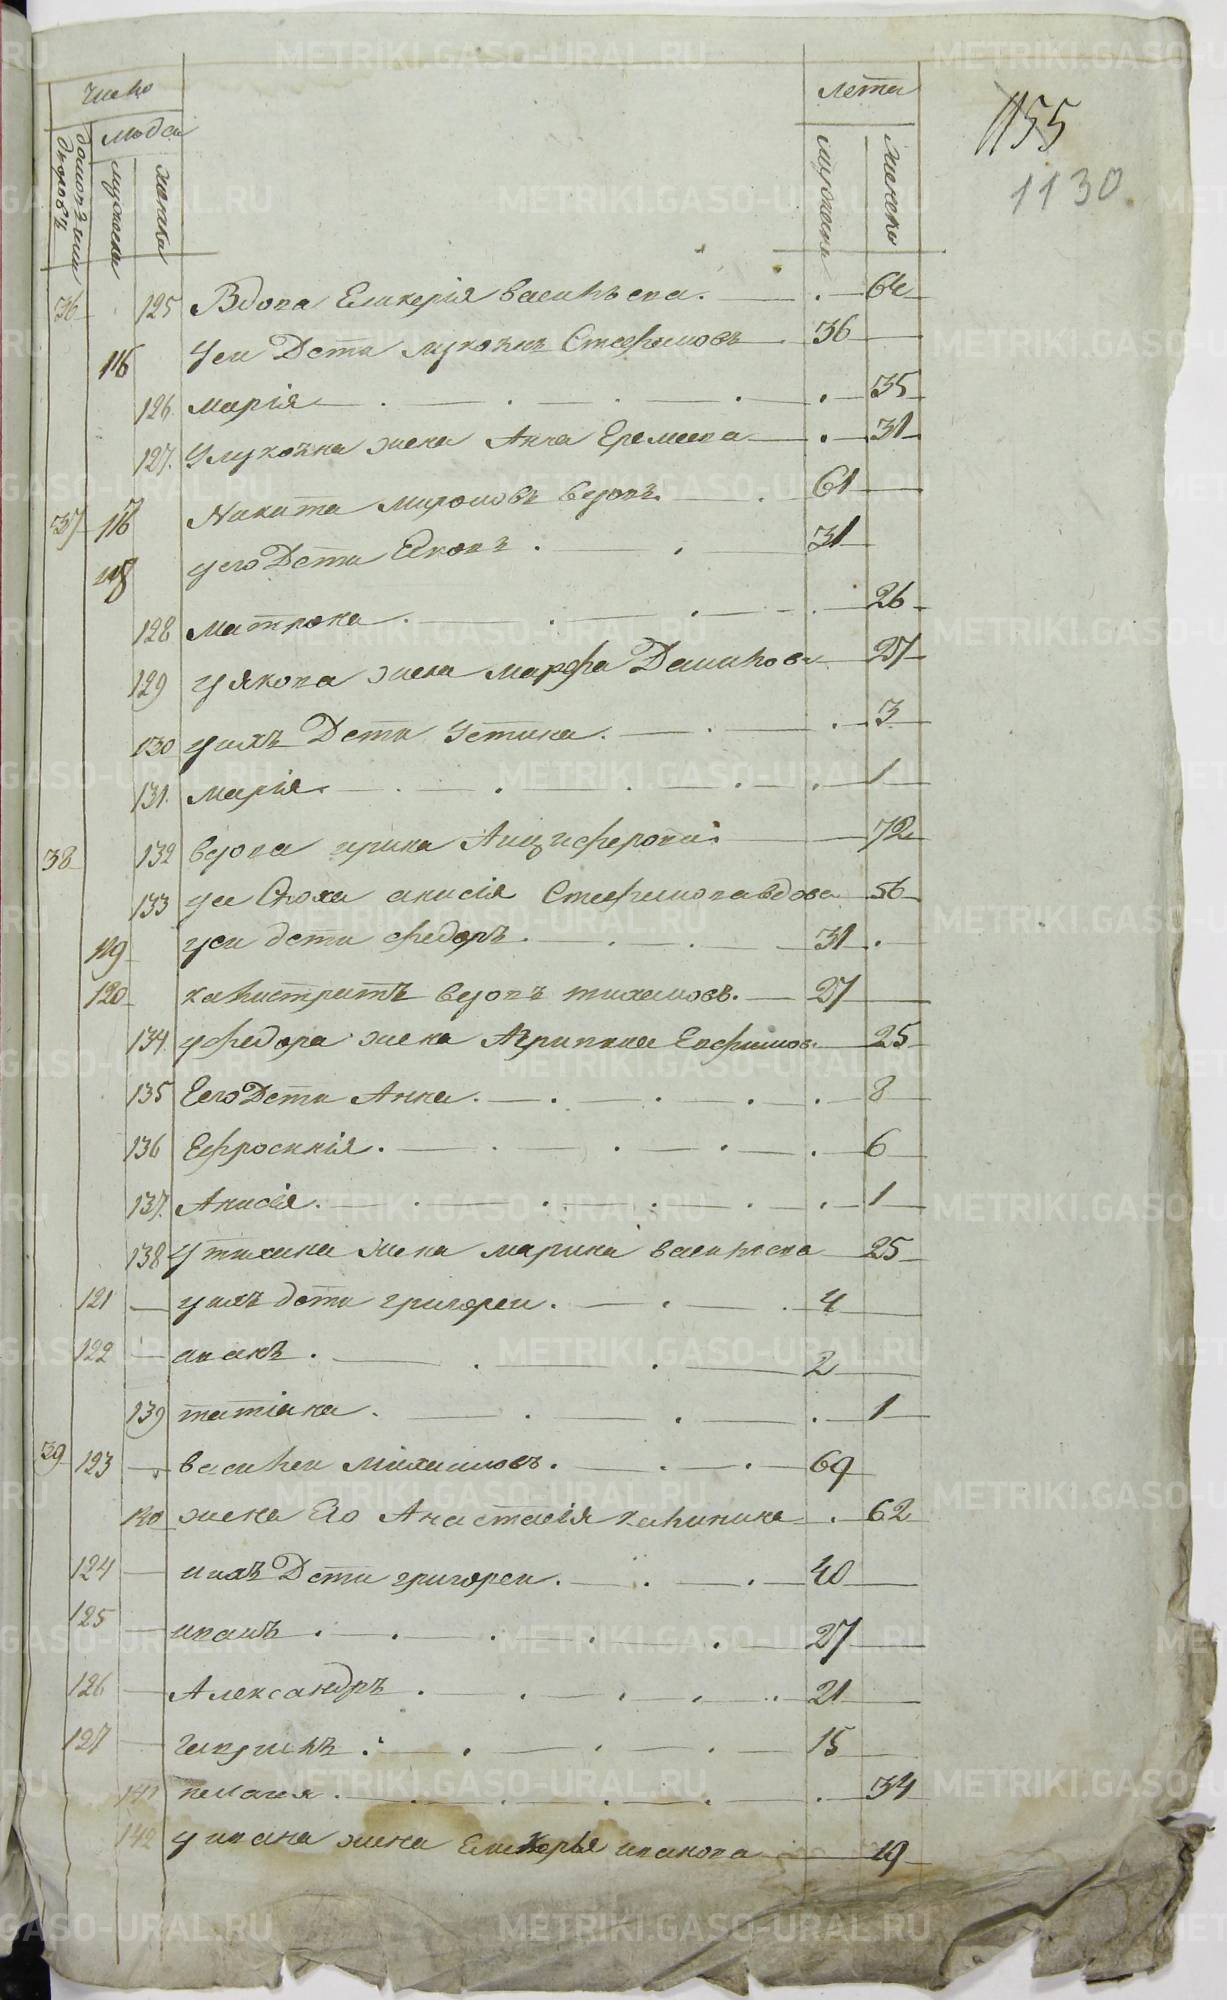 Число лета
люди
домов или дворовъ мужеска женска мужеска женска
1155
1130
36 125 Вдова Гликерія васильева. 64
116 Уеи Дети лукоянъ Стефановъ 36
126 марія 35
127. Улукояна жена Анна Еремеева 31
37 116 Никита мироновъ вдовъ. 61
118 уего Дети Яковъ 31
128 матрона. 26
129 уякова жена марфа Данилова 27
130 унихъ Дети Устина. 3
131. марія. 1
38 132 вдова ирина Анциферова 72
133 уее Сноха анисія Стефанова вдова 56
119 уеи дети федоръ. 31
120 калистратъ вдовъ тихановъ. 27
134 уфедора жена Агрипина Евфимов. 25
135 Еего Дети Анна. 8
136 Ефросинія. 6
137. Анисія. 1
138 Утихана жена марина васильева 25
121 унихъ дети григореи. 4
122 иванъ. 2
139 татіана. 1
39 123 василеи михаиловъ. 69
140 жена Его Анастасія калинина 62
124 ихъ Дети григореи. 40
125 иванъ. 27
126 Александръ. 21
127 гавриилъ. 15
141 пелагея. 34
142 уивана жена Гликерья иванова 19
METRIKI.GASO-URAL.RU